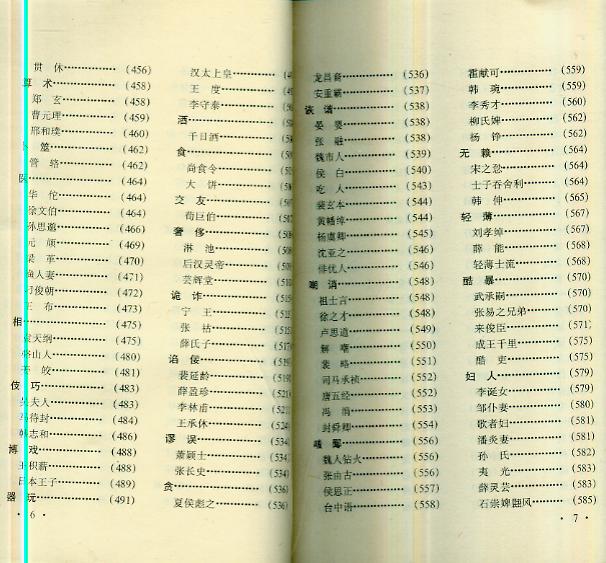 贯 休…………(456)
算 术…………(458)
郑 玄…………(458)
曹元理…………(459)
邢和璞…………(460)
卜 筮…………(462)
管 辂…………(462)
医…………(464)
华 佗…………(464)
徐文伯…………(464)
孙思邈…………(466)
元 颃…………(469)
梁 革…………(470)
渔人妻…………(471)
俊朝…………(472)
王 布…………(473)
相…………(475)
袁天纲…………(475)
山人…………(480)
皎…………(481)
伎 巧…………(483)
吴夫人…………(483)
马待封…………(484)
韩志和…………(486)
博 戏…………(488)
王积薪…………(488)
日本王子…………(489)
器 玩…………(491)
· 6 ·
汉太上皇…………
王 度…………
李守泰…………
酒…………
千日酒…………
食…………
尚食令…………
大 饼…………
交 友…………
荀巨伯…………
奢 侈…………
淋 池…………
后汉灵帝…………
芸辉堂…………
诡 诈…………(515
宁 王…………(515
张 祜…………(515
薛氏子…………(517
谄 佞…………(519
裴延龄…………(519)
薛盈珍…………(521)
李林甫…………
王承休…………(524)
谬 误…………(534)
萧颖士…………(534)
张长史…………(534)
贪…………(536)
夏侯彪之…………(536)
龙昌裔…………(536)
安重霸…………(537)
诙 谐…………(538)
晏 婴…………(538)
张 融…………(538)
魏市人…………(539)
侯 白…………(540)
吃 人…………(543)
裴玄本…………(544)
黄幡绰…………(544)
杨虞卿…………(545)
沈亚之…………(546)
俳优人…………(546)
嘲 诮…………(548)
祖士言…………(548)
徐之才…………(548)
卢思道…………(549)
解 嘲…………(550)
裴 略…………(551)
司马承祯…………(552)
唐五经…………(552)
冯 涓…………(553)
封舜卿…………(554)
嗤 鄙…………(556)
魏人钻火…………(556)
张由古…………(556)
侯思正…………(557)
台中语…………(558)
霍献可…………(559)
韩 琬…………(559)
李秀才…………(560)
柳氏婢…………(562)
杨 铮…………(562)
无 赖…………(564)
宋之愻…………(564)
士子吞舍利…………(564)
韩 伸…………(565)
轻 薄…………(567)
刘孝绰…………(567)
薛 能…………(568)
轻薄士流…………(568)
酷 暴…………(570)
武承嗣…………(570)
张易之兄弟…………(570)
来俊臣…………(571)
成王千里…………(575)
酷 吏…………(575)
妇 人…………(579)
李诞女…………(579)
邹仆妻…………(580)
歌者妇…………(581)
潘炎妻…………(581)
孙 氏…………(582)
夷 光…………(583)
薛灵芸…………(583)
石崇婢翾风…………(585)
· 7 ·